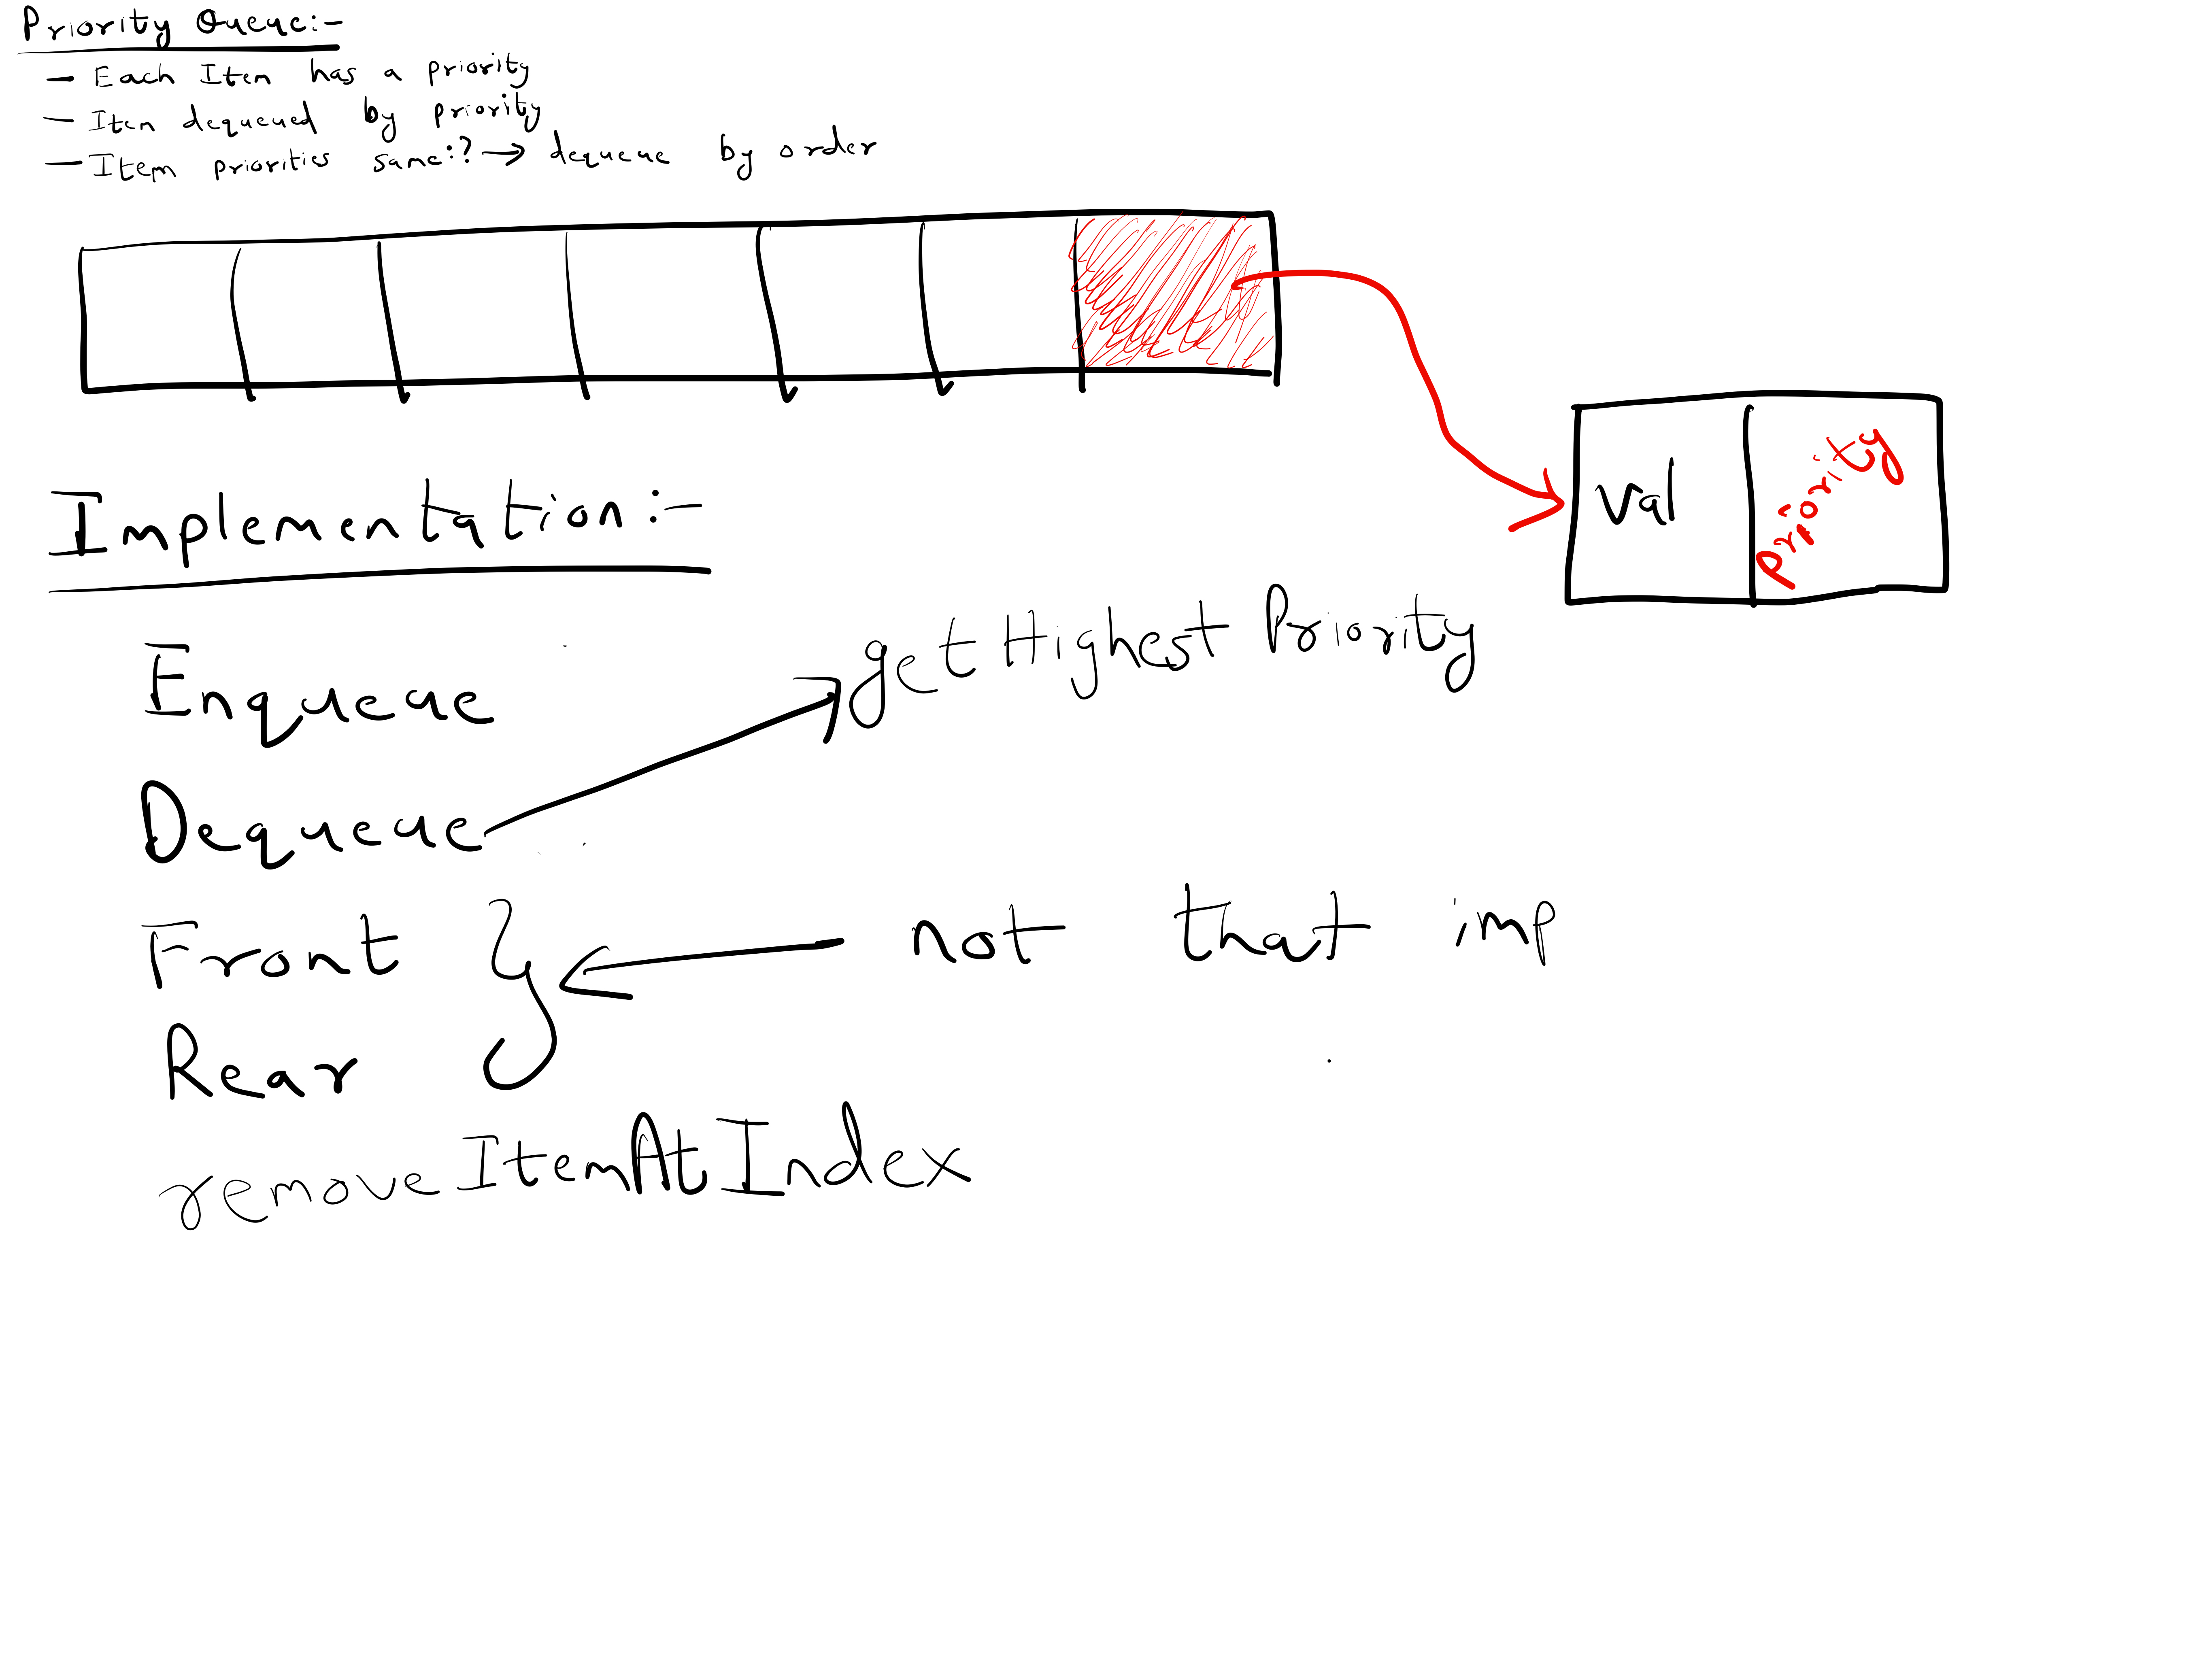 Priority Queue:-
— Each Item has a priority
— Item dequeued by priority
— Item priorities same:? → dequeue by order
Val
Priority
Implementation:-
Enqueue
get Highest Priority
Dequeue
Front
not that imp
Rear
remove ItemAt Index